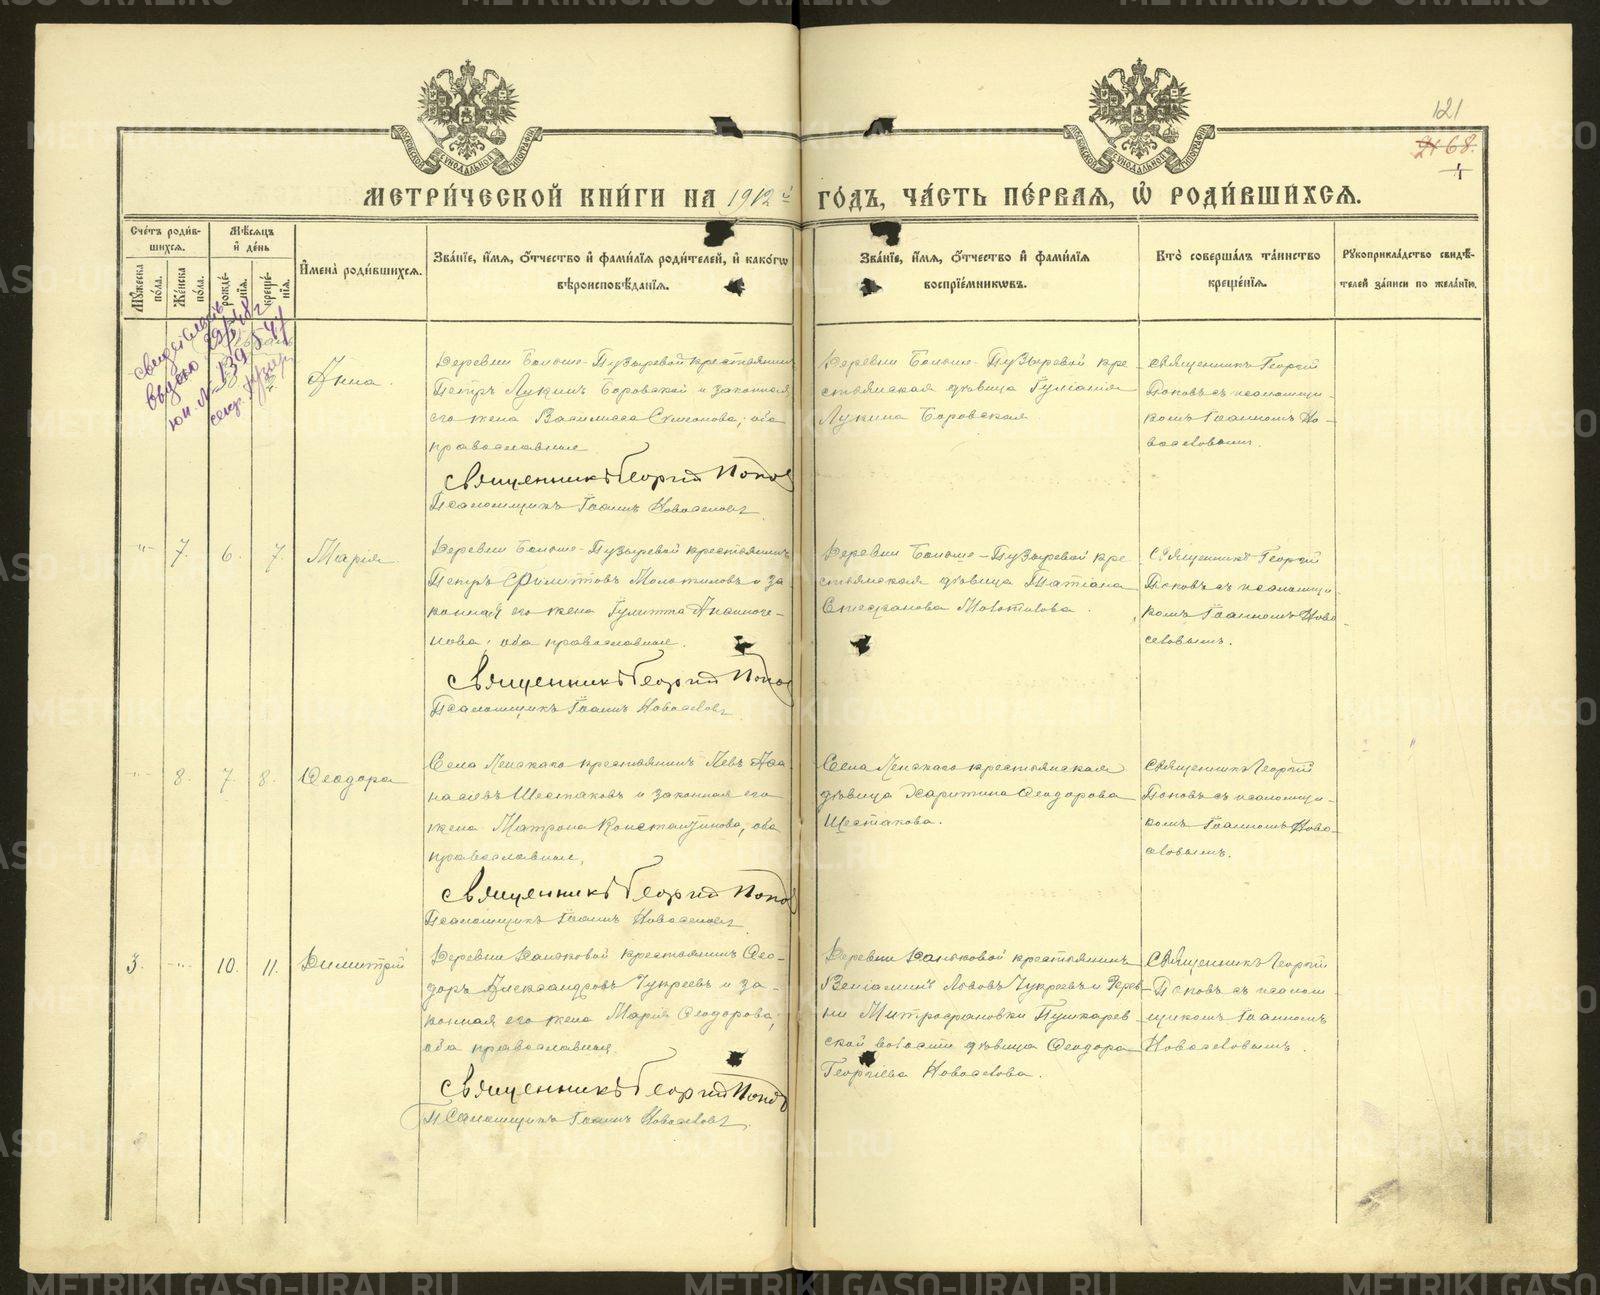 121
68.
МЕТРИ́ЧЕСКОЙ КНИ́ГИ НА 1912 й ГО́ДЪ, ЧА́СТЬ ПЕ́РВАЯ, Ѡ҆ РОДИ́ВШИХСЯ.
Сче́тъ роди́в-
шихся.
Мꙋ́жеска по́ла.
Же́нска по́ла.
Мѣ́сяцъ
и҆ де́нь
рожде́-
нїя.
креще́-
нїя.
И҆мена̀ роди́вшихся.
Зва́нїе, и҆́мя, ѻ҆́тчество и҆ фами́лїя роди́телей, и҆ како́гѡ
вѣроисповѣ́данїя.
Зва́нїе, и҆́мя, ѻ҆́тчество и҆ фами́лїя
воспрїе́мникѡвъ.
Кто̀ соверша́лъ та́инство
креще́нїя.
Рꙋкоприкла́дство свидѣ́-
телей за́писи по жела́нїю.
Анна.
Деревни Больше-Пузыревой крестьянинъ
Петръ Лукинъ Боровской и законная
его жена Василисса Симонова, оба
православные
Священникъ Георгій Попов
Псаломщикъ Іоаннъ Новоселовъ
Деревни Больше-Пузыревой кре-
стьянская дѣвица Іуліанія
Лукина Боровская
Священникъ Георгій
Поповъ съ псаломщи-
комъ Іоанномъ Но-
воселовымъ.
7. 6. 7. Марія
Деревни Больше-Пузыревой крестьянинъ
Петръ Молотиловъ и за-
конная его жена Іулитта
оба православные.
Священникъ Георгій Попов
Псаломщикъ Іоаннъ Новоселовъ
Деревни Больше-Пузыревой кре-
стьянская дѣвица Татіана
Стефанова Молотилова.
Священникъ Георгій
Поповъ съ псаломщи-
комъ Іоанномъ Ново-
селовымъ.
8. 7. 8. Ѳеодора
Села крестьянинъ Левъ Аѳа-
насіевъ Шестаковъ и законная его
жена Матрона Константинова, оба
православные.
Священникъ Георгій Попов
Псаломщикъ Іоаннъ Новоселовъ
Села крестьянская
дѣвица Харитина Ѳеодорова
Шестакова.
Священникъ Георгій
Поповъ съ псаломщи-
комъ Іоанномъ Ново-
селовымъ.
3. 10. 11. Димитрій
Деревни крестьянинъ Ѳео-
доръ Александровъ Чукреевъ и за-
конная его жена Марія Ѳеодорова,
оба православные.
Священникъ Георгій Попов
Псаломщикъ Іоаннъ Новоселовъ.
Деревни крестьянинъ
Веніаминъ Львовъ Чукреевъ и дерев-
ни Митрофановки Пушкарев-
ской волости дѣвица Ѳеодора
Георгіева Новоселова.
Священникъ Георгій
Поповъ съ псалом-
щикомъ Іоанномъ
Новоселовымъ.
METRIKI.GASO-URAL.RU